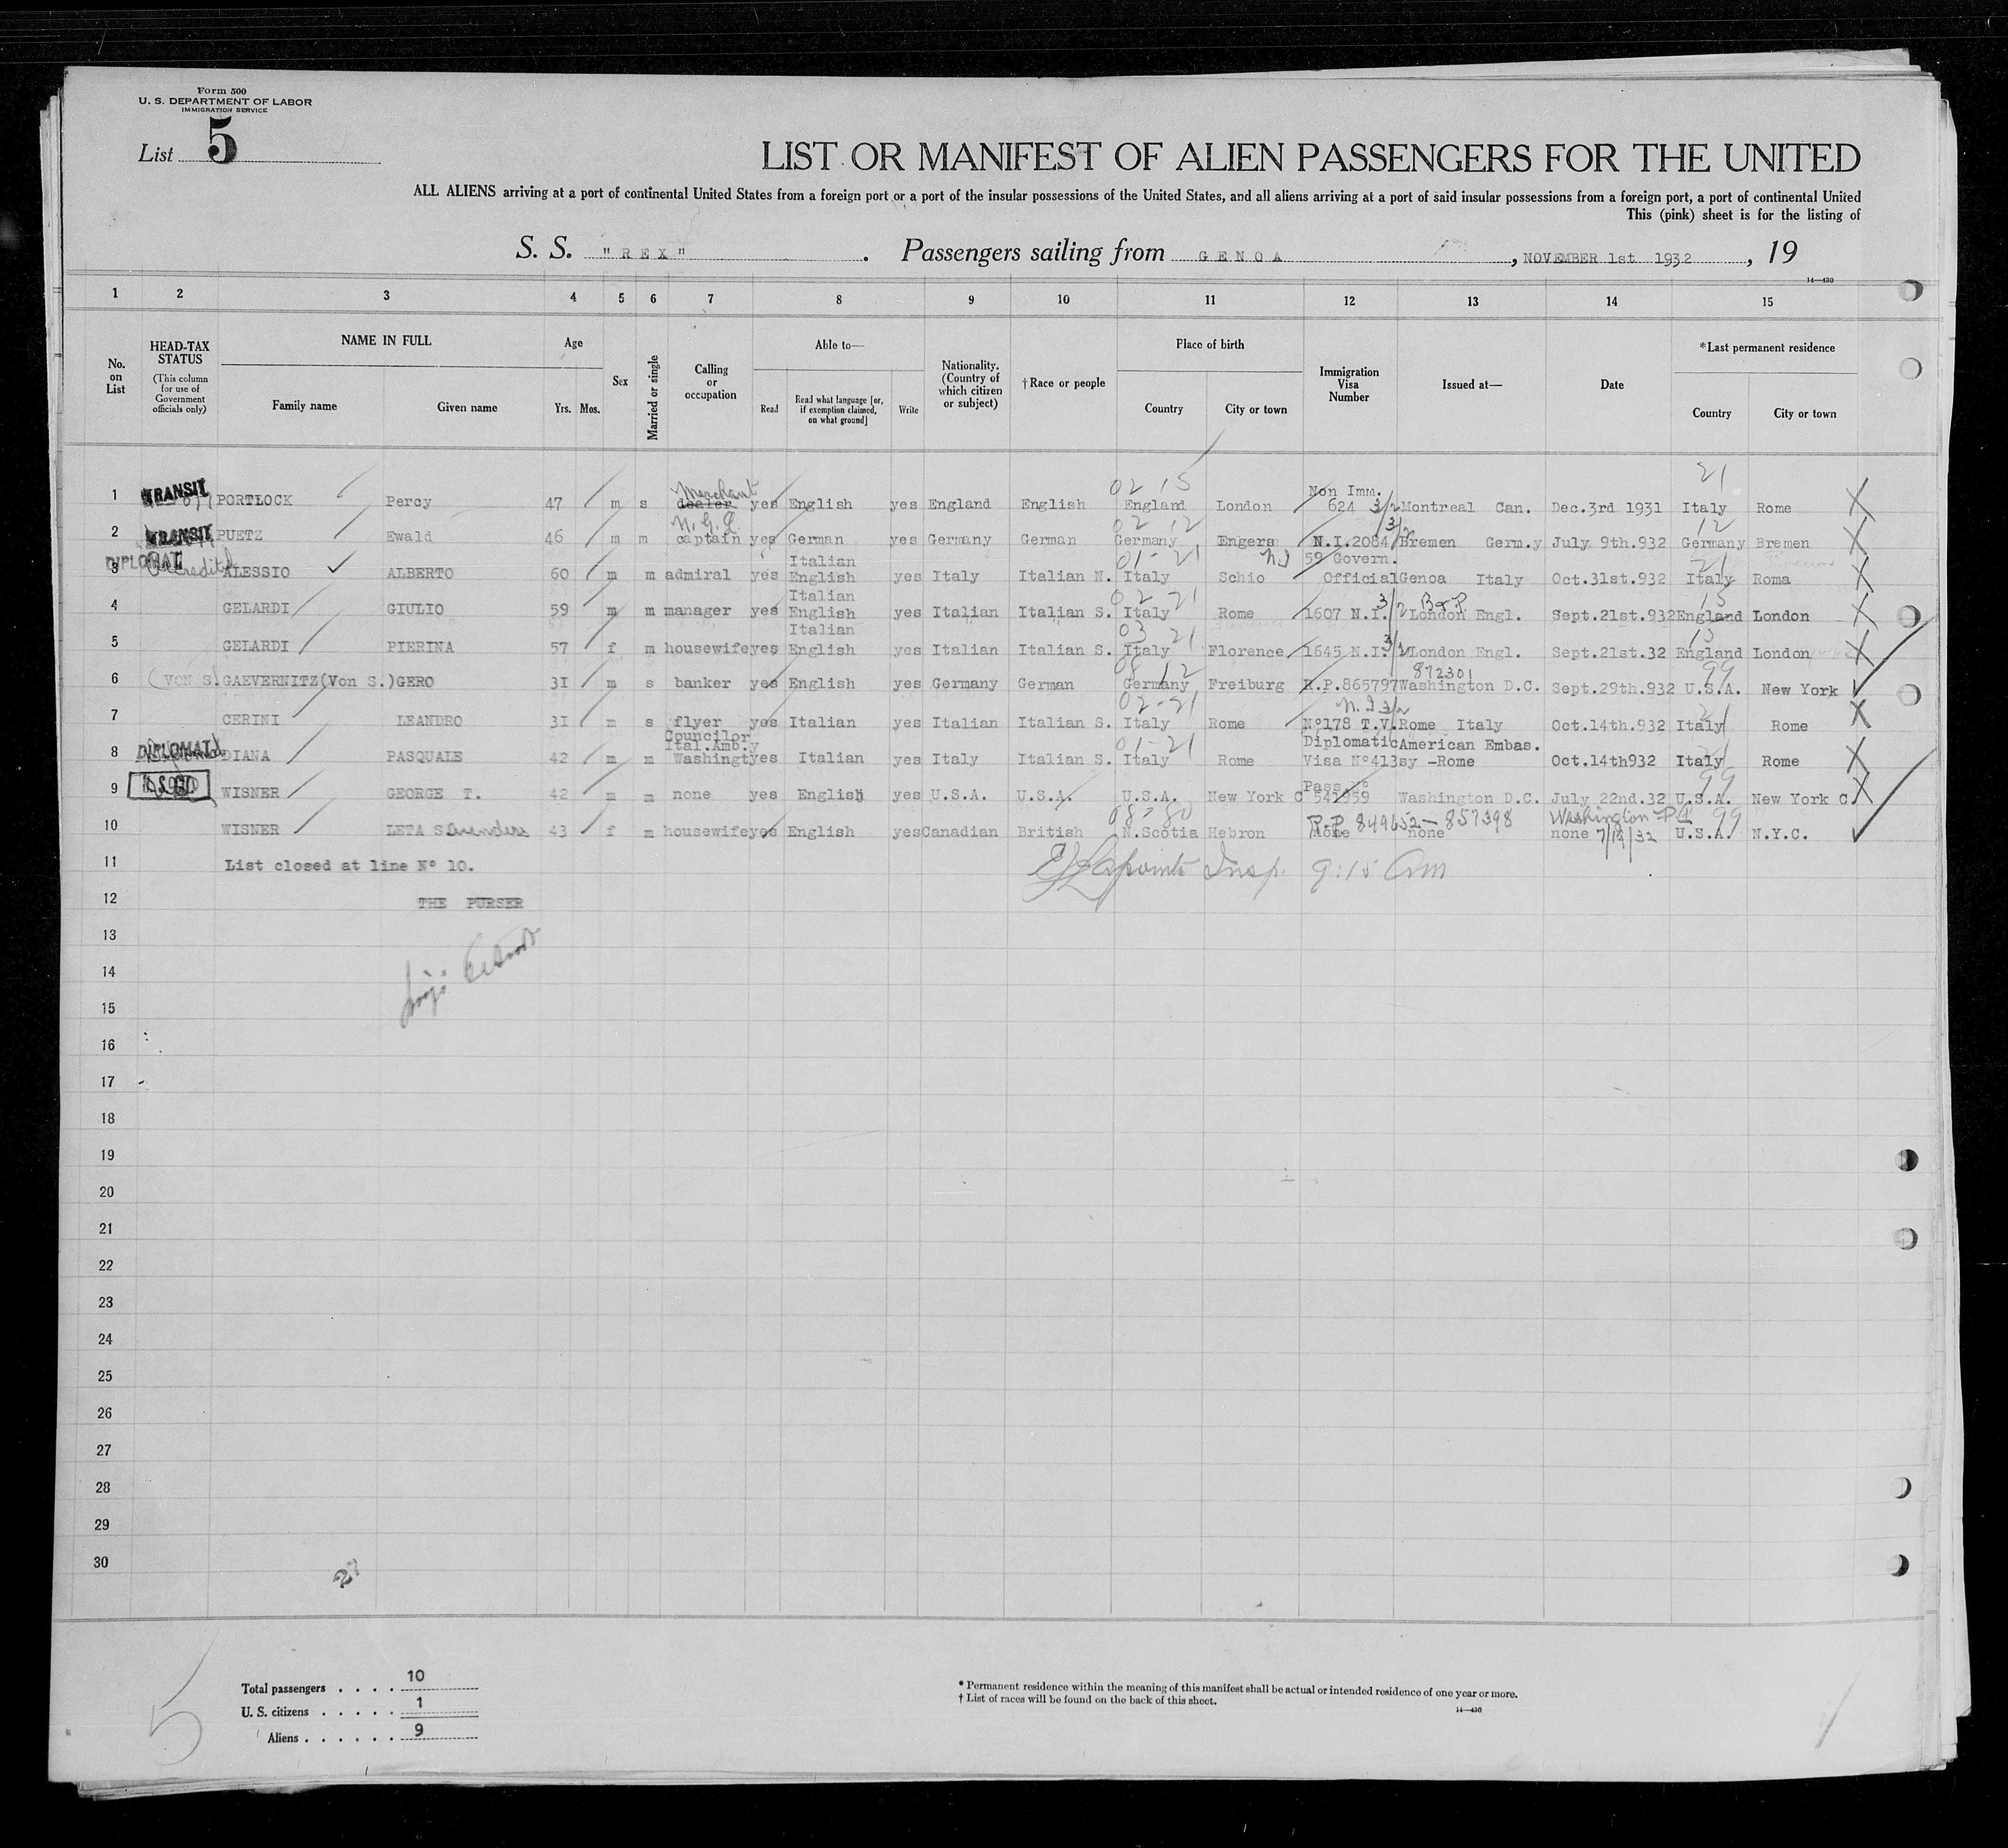 Form 500
U. S. DEPARTMENT OF LABOR
IMMIGRATION SERVICE
List 5
LIST OR MANIFEST OF ALIEN PASSENGERS FOR THE UNITED
ALL ALIENS arriving at a port of continental United States from a foreign port or a port of the insular possessions of the United States, and all aliens arriving at a port of said insular possessions from a foreign port, a port of continental United
This (pink) sheet is for the listing of
S. S. "REX" . Passengers sailing from GENOA , NOVEMBER 1st 1932 , 19
14—430
1 2 3 4 5 6 7 8 9 10 11 12 13 14 15
No. on List
HEAD-TAX STATUS (This column for use of Government officials only)
NAME IN FULL
Family name Given name
Age
Yrs. Mos.
Sex
Married or single
Calling or occupation
Able to—
Read
Read what language [or, if exemption claimed, on what ground]
Write
Nationality. (Country of which citizen or subject)
†Race or people
Place of birth
Country City or town
Immigration Visa Number
Issued at—
Date
*Last permanent residence
Country City or town
02 15 21
Merchant Non Imm.
1 TRANSIT PORTLOCK Percy 47 m s dealer yes English yes England English England London 624 3/2 Montreal Can. Dec.3rd 1931 Italy Rome
N.G.L 02 12 3/2 12
2 TRANSIT PUETZ Ewald 46 m m captain yes German yes Germany German Germany Engers N.I.2084 Bremen Germ.y July 9th.932 Germany Bremen
DIPLOMAT Accredited Italian 01-21 59 Govern. 21
3 ALESSIO ALBERTO 60 m m admiral yes English yes Italy Italian N. Italy Schio Official Genoa Italy Oct.31st.932 Italy Roma
Italian 02 21 3/2 15
4 GELARDI GIULIO 59 m m manager yes English yes Italian Italian S. Italy Rome 1607 N.I. London Engl. Sept.21st.932 England London
Italian 03 21 3/2 15
5 GELARDI PIERINA 57 f m housewife yes English yes Italian Italian S. Italy Florence 1645 N.I. London Engl. Sept.21st.32 England London
08 12 872301 99
6 (VON S. GAEVERNITZ(Von S.) GERO 31 m s banker yes English yes Germany German Germany Freiburg R.P.865797 Washington D.C. Sept.29th.932 U.S.A. New York
02-21 N.I 3/2 21
7 CERINI LEANDRO 31 m s flyer yes Italian yes Italian Italian S. Italy Rome Nº178 T.V. Rome Italy Oct.14th.932 Italy Rome
Councilor Ital.Amb.y 01-21 Diplomatic American Embas. 21
8 DIPLOMAT DIANA PASQUALE 42 m m Washingt yes Italian yes Italy Italian S. Italy Rome Visa Nº413 sy -Rome Oct.14th932 Italy Rome
Pass.Nº 99
9 WISNER GEORGE T. 42 m m none yes English yes U.S.A. U.S.A. U.S.A. New York C 541959 Washington D.C. July 22nd.32 U.S.A. New York C.
08-80 R.P 849652-857398 Washington 99
10 WISNER LETA Saunders 43 f m housewife yes English yes Canadian British N.Scotia Hebron none none none 7/19/32 U.S.A. N.Y.C.
11 List closed at line Nº 10.
Insp. 9:15 am
12 THE PURSER
13
14
15
16
17
18
19
20
21
22
23
24
25
26
27
28
29
30
5
Total passengers . . . . 10
U. S. citizens . . . . . 1
Aliens . . . . . . 9
* Permanent residence within the meaning of this manifest shall be actual or intended residence of one year or more.
† List of races will be found on the back of this sheet.
14—430